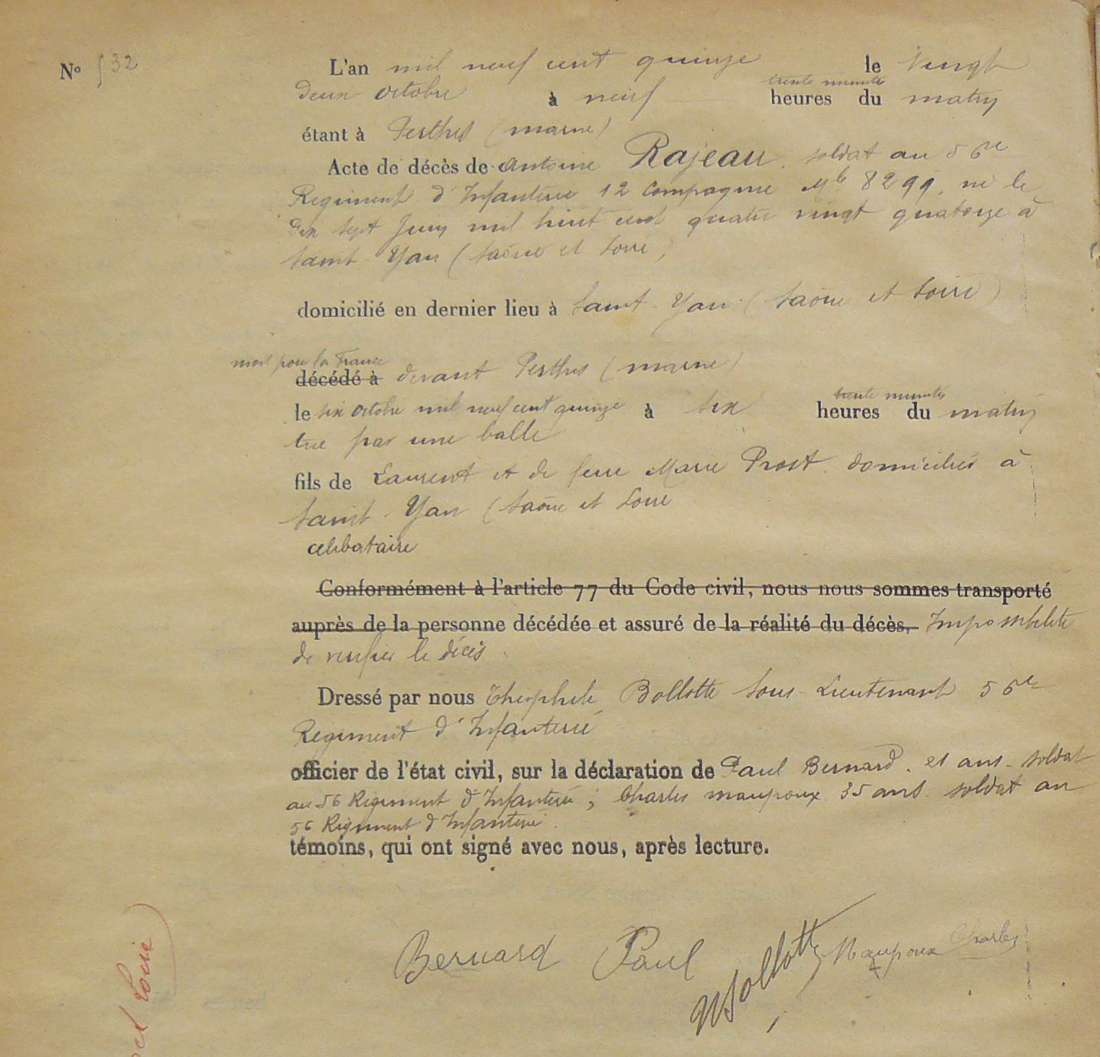 N° 532
L'an mil neuf cent quinze le vingt
trente minutes
deux octobre à neuf heures du matin
étant à Perthes (marne)
Acte de décès de Antoine Rajeau. soldat au 56e
Regiment d'Infanterie 12 Compagnie Mle 8299. né le
dix sept Juin mil huit cent quatre vingt quatorze à
Saint-Yan (Saône et Loire)
domicilié en dernier lieu à Saint-Yan (Saône et Loire)
mort pour la France
décédé à devant Perthes (marne)
trente minutes
le six octobre mil neuf cent quinze à six heures du matin
tué par une balle
fils de Laurent et de feue Marie Prost. domiciliés à
Saint-Yan (Saône et Loire
celibataire
Conformément à l'article 77 du Code civil, nous nous sommes transporté
auprès de la personne décédée et assuré de la réalité du décès, Impossibilité
de verifier le décès.
Dressé par nous Théophile Bollotte Sous-Lieutenant 56e
Regiment d'Infanterie
officier de l'état civil, sur la déclaration de Paul Bernard. ans. soldat
au 56 Régiment d'Infanterie; Charles Maupoux 35 ans. soldat au
56 Régiment d'Infanterie.
témoins, qui ont signé avec nous, après lecture.
Bernard Paul Bollotte Maupoux Charles
et Loire)